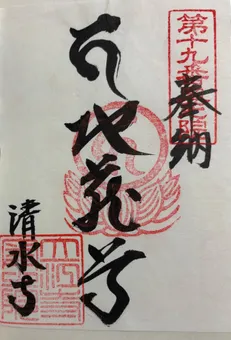 第十九番
奉納
石地蔵尊
清水寺